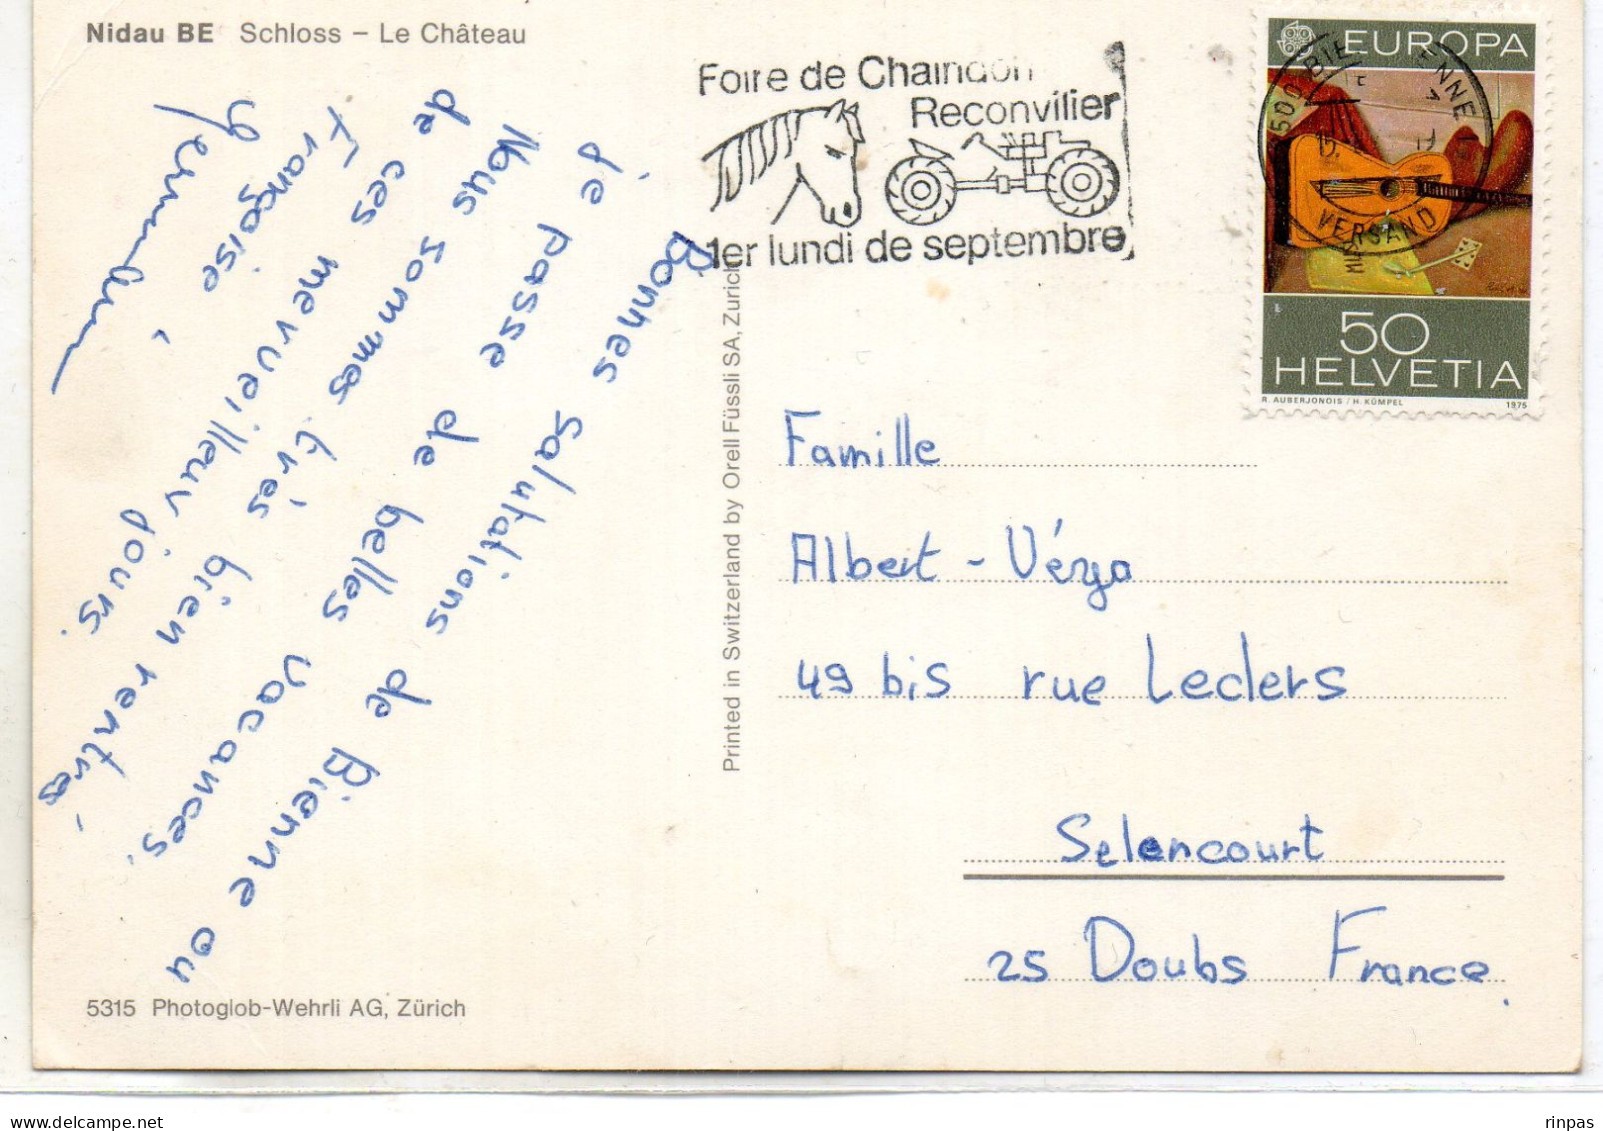 Nidau BE Schloss – Le Château
Foire de Chaindon
Reconvilier
1er lundi de septembre
EUROPA
VERSAND
50
HELVETIA
R. AUBERJONOIS / H. KÜMPEL 1975
Bonnes salutations de Bienne ou
je passe de belles vacances.
Nous sommes très bien rentrés
de ces merveilleux jours.
Françoise
Printed in Switzerland by Orell Füssli SA, Zurich
Famille
Albert - Vézya
49 bis rue Leclers
Selencourt
25 Doubs France
5315 Photoglob-Wehrli AG, Zürich
rinpas